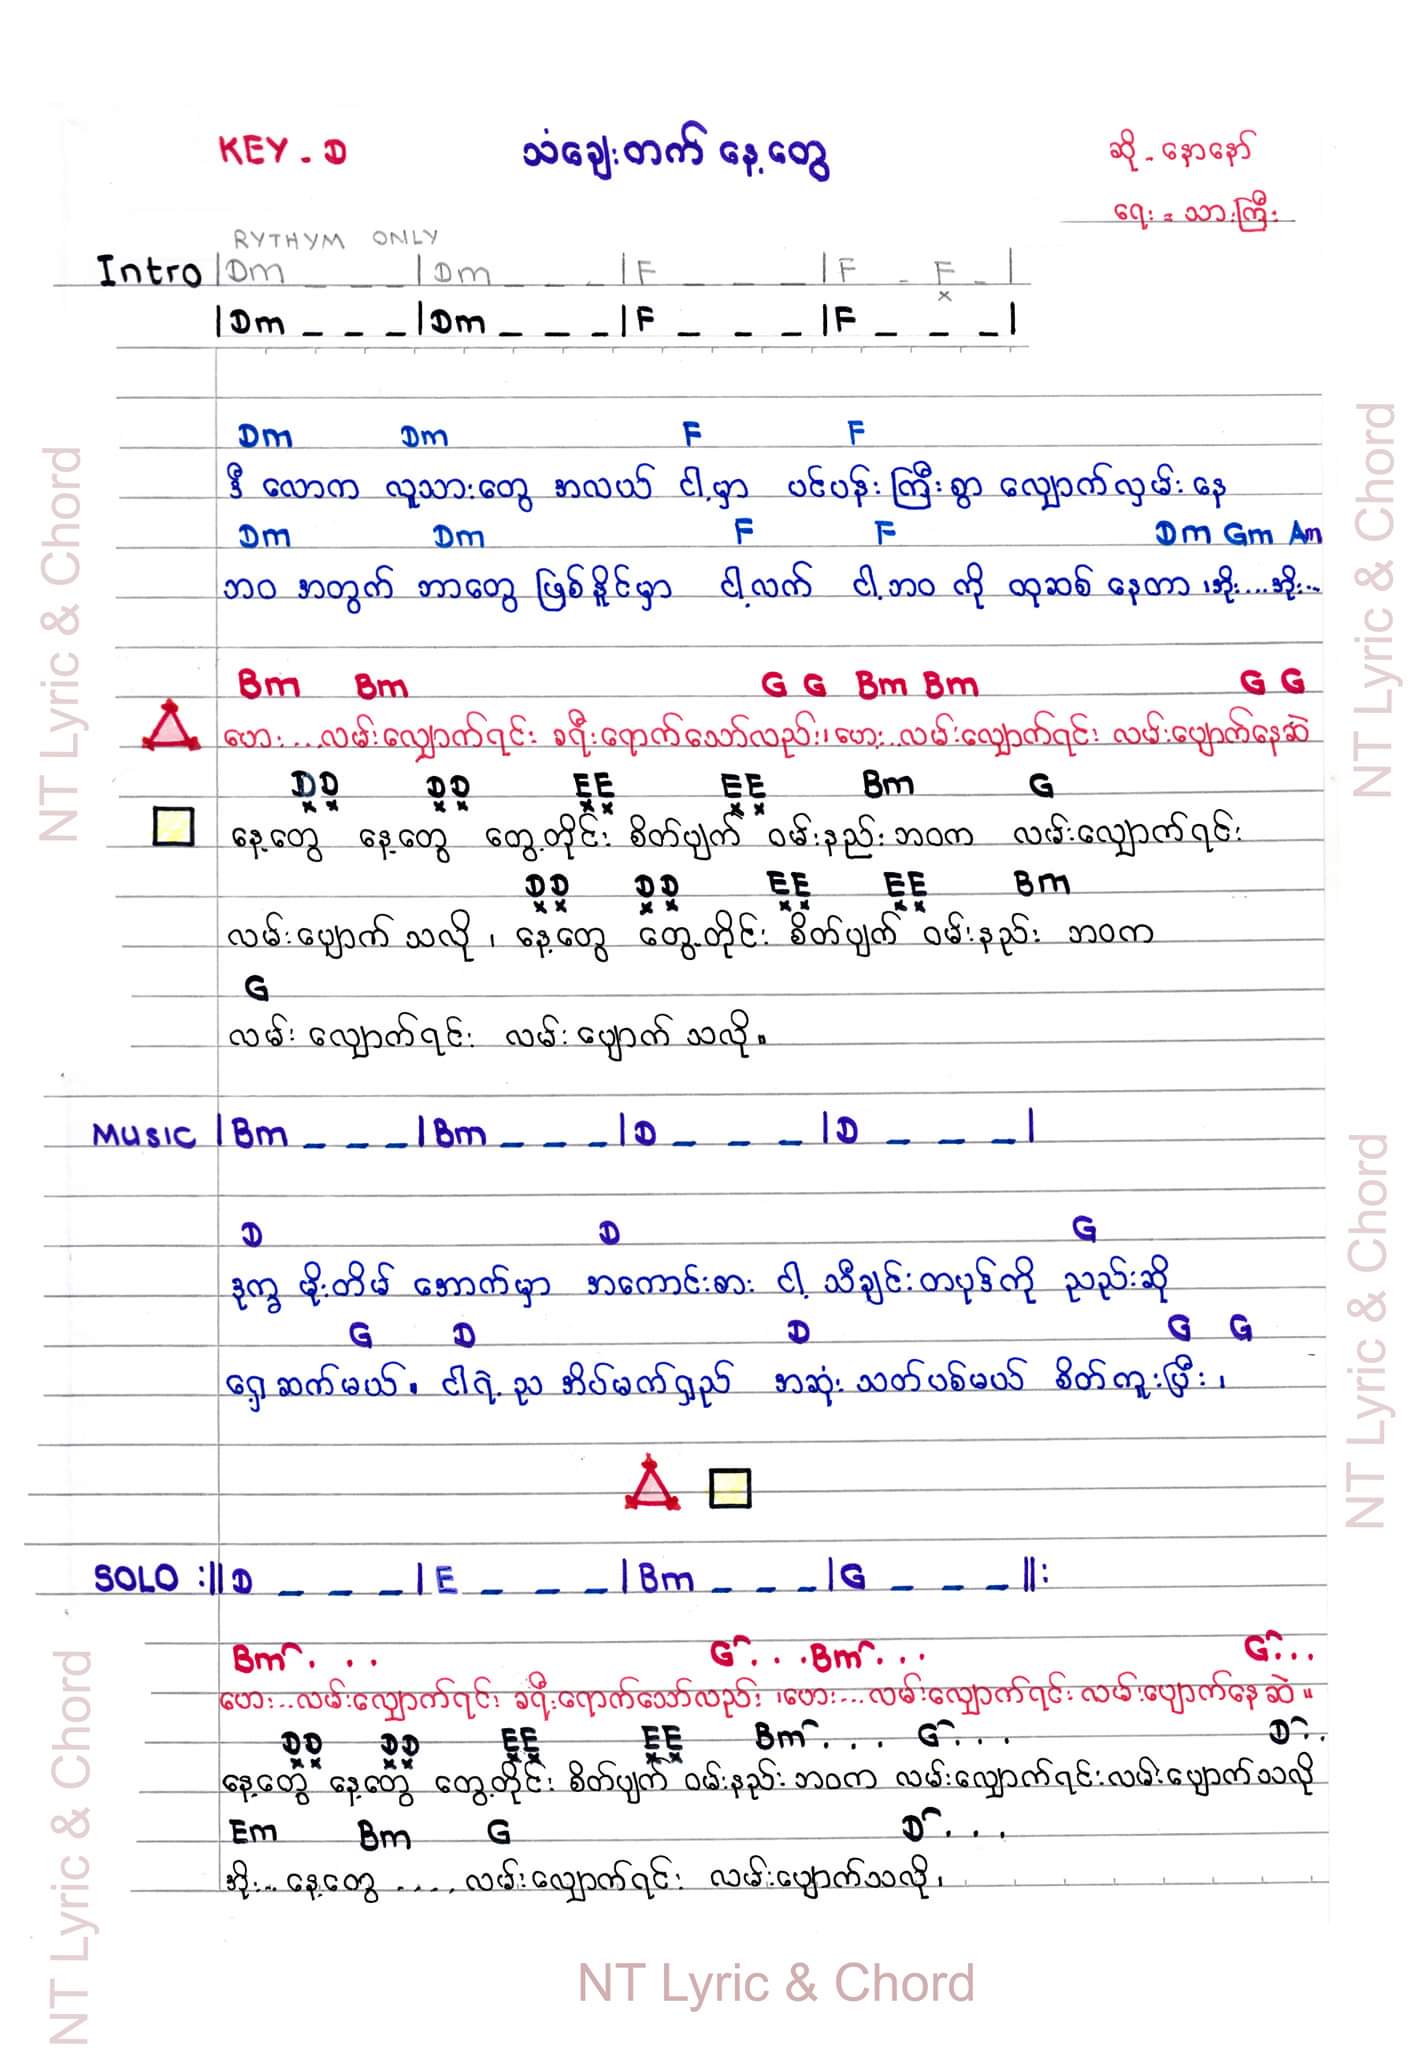 KEY - D
သံချေးတက် နေ့တွေ
ဆို - နောနော်
ရေး = သားကြီး
RYTHYM ONLY
Intro |Dm _ _ _ |Dm _ _ _ |F _ _ _ |F _ F _ |
x
|Dm _ _ _ |Dm _ _ _ |F _ _ _ |F _ _ _ |
Dm Dm F F
ဒီ လောက လူသားတွေ အလယ် ငါ့မှာ ပင်ပန်းကြီးစွာ လျှောက်လှမ်းနေ
Dm Dm F F Dm Gm Am
ဘဝ အတွက် ဘာတွေ ဖြစ်နိူင်မှာ ငါ့လက် ငါ့ဘဝ ကို ထုဆစ် နေတာ ၊အိုး....အိုး...
Bm Bm G G Bm Bm G G
ဟေး....လမ်းလျှောက်ရင်း ခရီးရောက်သော်လည်း၊ဟေး...လမ်းလျှောက်ရင်း လမ်းပျောက်နေဆဲ
DD DD EE EE Bm G
xx xx xx xx
နေ့တွေ နေ့တွေ တွေ့တိုင်း စိတ်ပျက် ဝမ်းနည်းဘဝက လမ်းလျှောက်ရင်း
DD DD EE EE Bm
xx xx xx xx
လမ်းပျောက် သလို ၊ နေ့တွေ တွေ့တိုင်း စိတ်ပျက် ဝမ်းနည်း ဘဝက
G
လမ်း လျှောက်ရင်း လမ်းပျောက် သလို။
MUSIC |Bm _ _ _ |Bm _ _ _ |D _ _ _ |D _ _ _ |
D D G
ဒုက္ခ မိုးတိမ် အောက်မှာ အကောင်းစား ငါ့ သီချင်းတပုဒ်ကို ညည်းဆို
G D D G G
ရှေ့ဆက်မယ်။ ငါရဲ့ည အိပ်မက်ရှည် အဆုံး သတ်ပစ်မယ် စိတ်ကူးပြီး၊
SOLO :||D _ _ _ |E _ _ _ |Bm _ _ _ |G _ _ _ ||:
Bm . . . G . . . Bm . . . G . . .
ဟေး...လမ်းလျှောက်ရင်း ခရီးရောက်သော်လည်း ၊ဟေး....လမ်းလျှောက်ရင်း လမ်းပျောက်နေဆဲ။
DD DD EE EE Bm . . . G . . . D . .
xx xx xx xx
နေ့တွေ နေ့တွေ တွေ့တိုင်း စိတ်ပျက် ဝမ်းနည်းဘဝက လမ်းလျှောက်ရင်းလမ်းပျောက်သလို
Em Bm G D . . .
အိုး... နေ့တွေ ..... လမ်းလျှောက်ရင်း လမ်းပျောက်သလို၊
NT Lyric & Chord
NT Lyric & Chord
NT Lyric & Chord
NT Lyric & Chord
NT Lyric & Chord